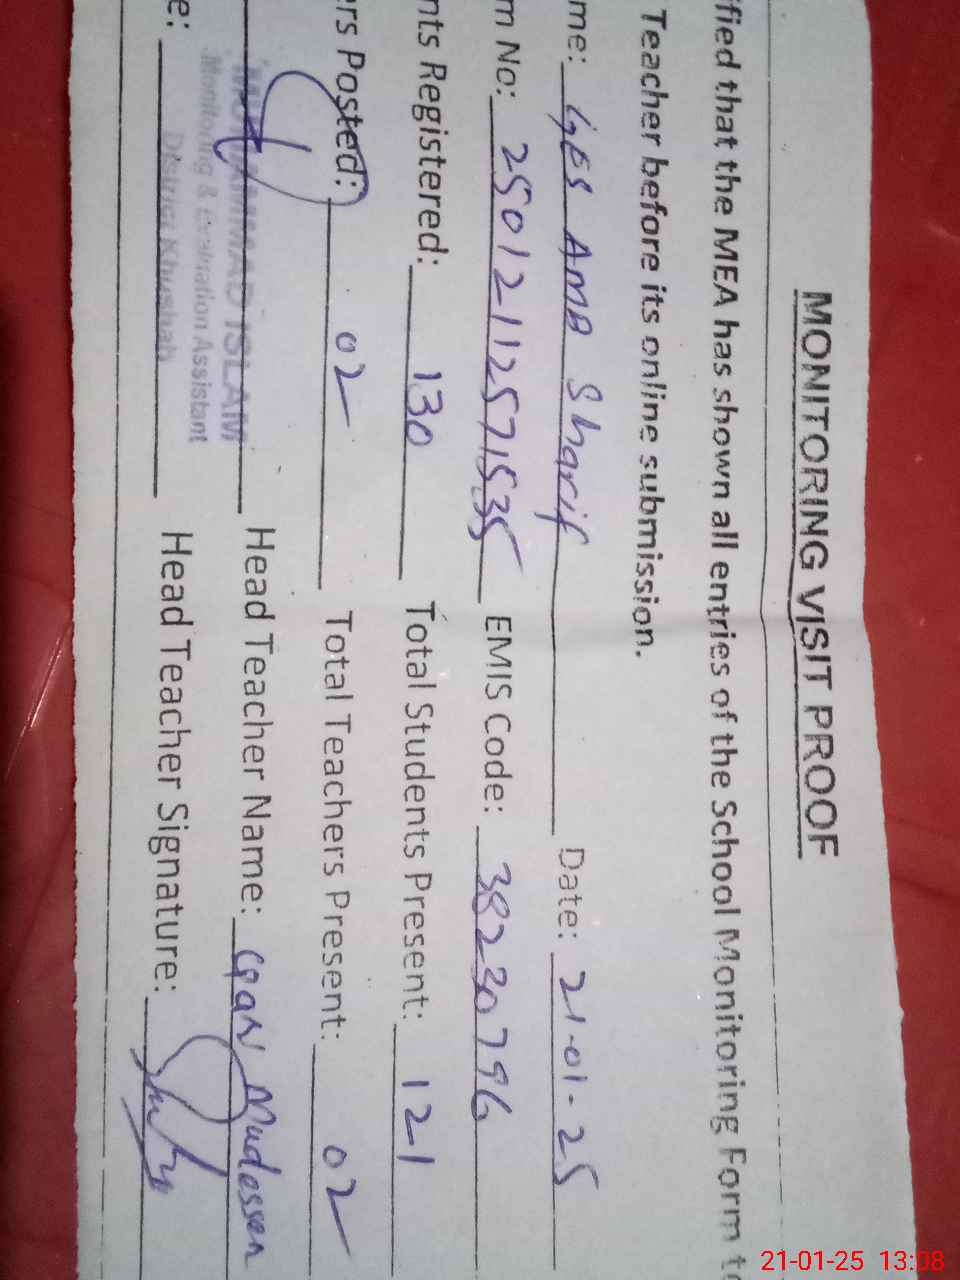 MONITORING VISIT PROOF
ified that the MEA has shown all entries of the School Monitoring Form to
Teacher before its online submission.
me: GES AMB Sharif Date: 21-01-25
m No: 25012112571535 EMIS Code: 38230796
nts Registered: 130 Total Students Present: 121
rs Posted: 02 Total Teachers Present: 02
MUHAMMAD ISLAM Head Teacher Name: Mudassar
Monitoring & evaluation Assistant
District Khushab
e: Head Teacher Signature:
21-01-25 13:08